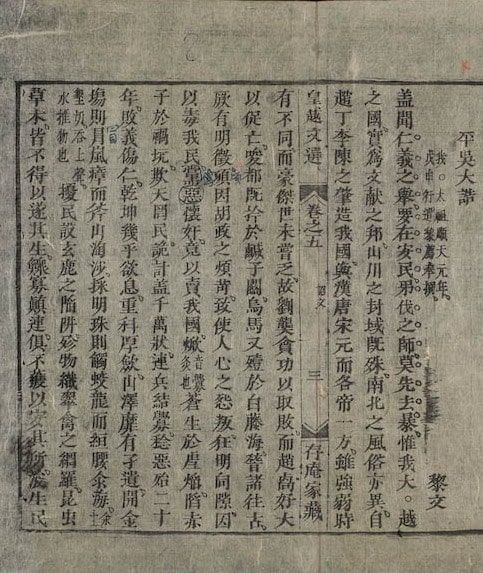 平吳大誥
我。太祖順天元年。
戊申行遣黎薦奉撰
黎文
盖聞仁義之舉。要在安民。吊伐之師莫先去暴惟我大。越
之國。實爲文献之邦山川之封域既殊。南北之風俗亦異自
趙丁李陳之肇造我國。與漢唐宋元而各帝一方。雖強弱時
皇越文選 卷之五 詔文 三 存庵家藏
有不同而豪傑世未嘗乏。故劉龑貪功以取敗而趙禼好大
以促亡。唆都既拾於鹹子關。烏馬又殪於白藤海。稽諸往古。
厥有明徵。頃因胡政之煩苛致使人心之怨叛。狂明向隙因
以毒我民。黨惡懷奸。竟以賣我國。焮音釁炙也蒼生於虐燄。陷赤
子於禍坑。欺天罔民。詭計盖千萬狀。連兵結釁。稔惡殆二十
年。敗義傷仁。乾坤幾乎欲息。重科厚歛。山澤靡有孑遺。開金
塲則冐嵐瘴而斧山淘沙。採明珠則觸蛟龍而絙腰汆海。汆土
墾切吞上聲水推物也擾民設玄鹿之陷阱。殄物織翠禽之網羅。昆虫
草木。皆不得以遂其生。鰥寡顛連。俱不獲以安其所。浚生民